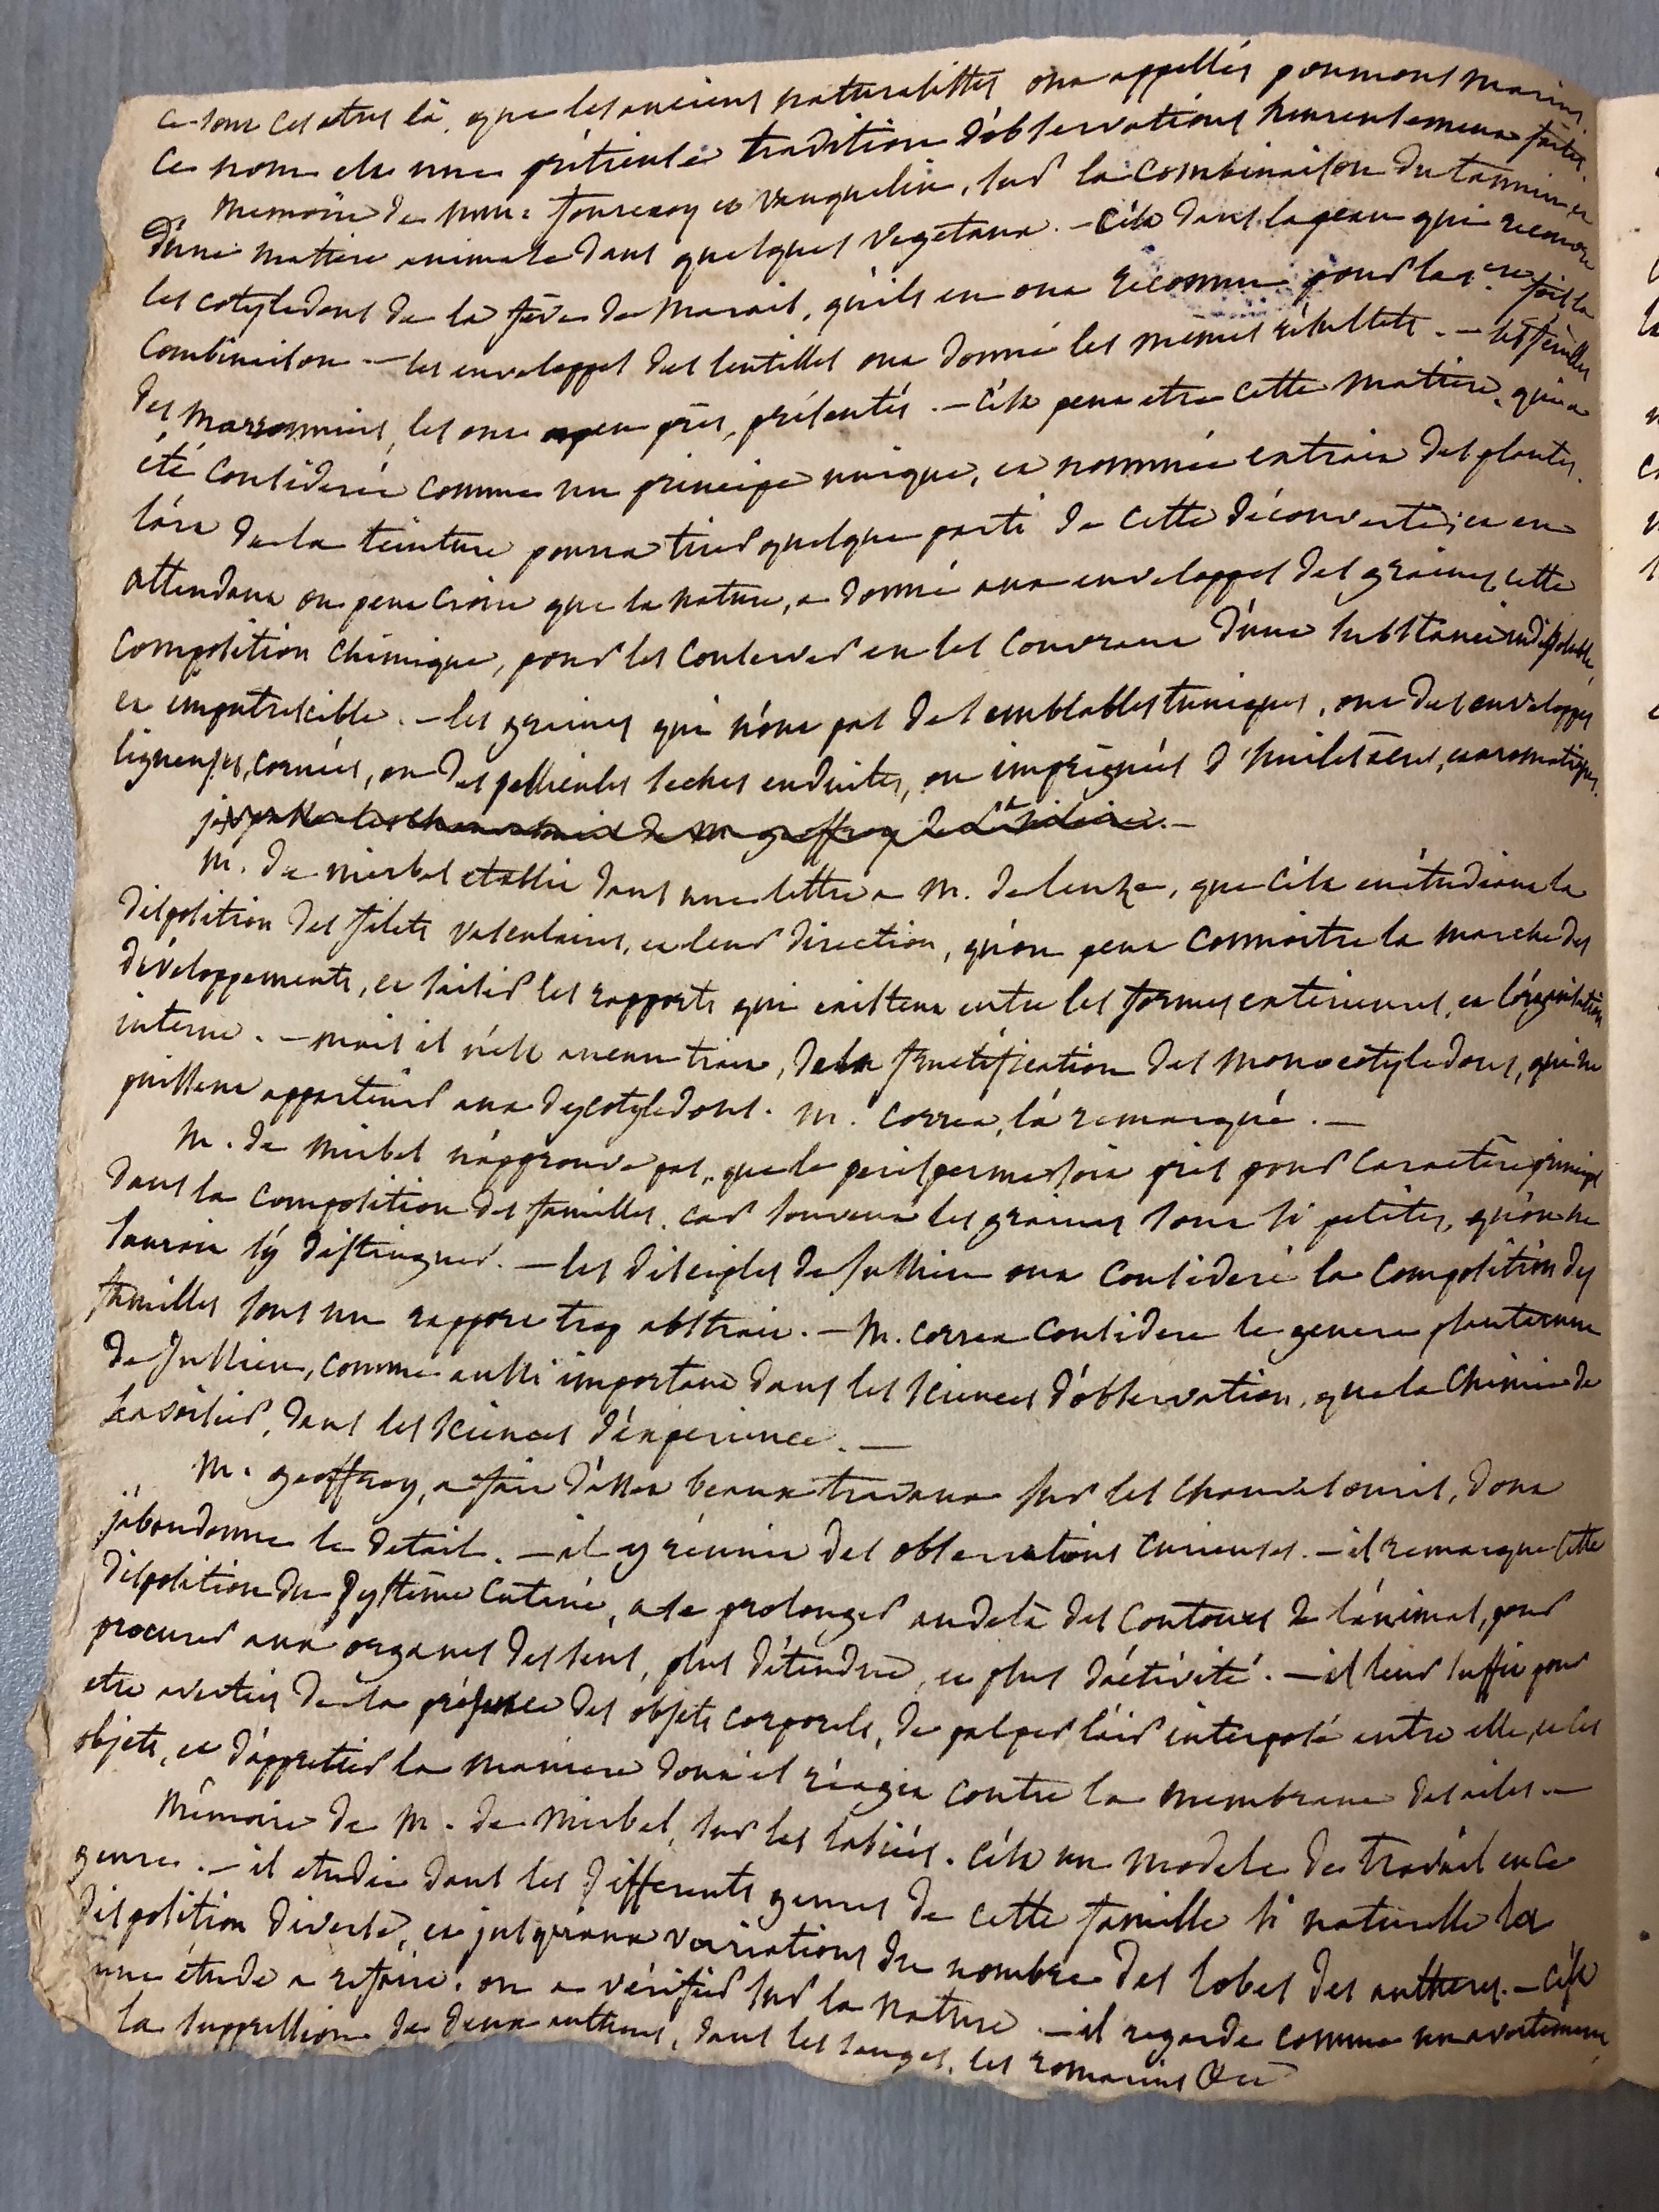 ce sont ces etres là, que les anciens natturalistes ont appellés poumons marins
ce nom est une tradition d'observations heureusement faites.
memoire de mm. fourcroy et vauquelin, sur la combinaison du tannin et
d'une mattiere animale dans quelques vegetaux. – c'est dans la peau qui recouvre
les cotyledons de la féve de marais, qu'ils en ont reconnu pour la 1ere fois la
combinaison. – les enveloppes des lentilles ont donné les mêmes résultats. – les feuilles
des marronniers, les ont apeu près, présentés. – c'est peut etre cette mattiere, qui a
été considerée comme un principe unique, et nommée extrait des plantes.
l'art de la teinture pourra tirer quelque parti de cette découverte; et en
attendant on peut croire que la nature, a donné aux enveloppes des graines, cette
composition chimique, pour les conserver en les couvrant d'une substance indissoluble,
et imputrescible. – les graines qui n'ont pas de semblables tuniques, ont des enveloppes
ligneuses, cornées, ou des pellicules seches enduites, ou imprégnées d'huiles acres, et aromatiques.
de m. geoffroy
m. de mirbel etablit dans une lettre a m. deleuze, que c'est en étudiant la
disposition des filets vasculaires, et leur direction, qu'on peut connoitre la marche des
développements, et saisir les rapports qui existent entre les formes exterieures, et l'organisation
interne. – mais il n'est aucun trait, de la fructification des monocotyledons, qui ne
puissent appartenir aux dycotyledons. m. correa, l'a remarqué. –
m. de mirbel n'approuve pas, que le perisperme soit pris pour caractère principal
dans la composition des familles. car souvent les graines sont si petites, qu'on ne
sauroit l'y distinguer. – les disciples de jussieu ont consideré la composition des
familles sous un rapport trop abstrait. – m. correa considere le genera plantarum
de jussieu, comme aussi important dans les sciences d'observation, que la chimie de
Lavoisier, dans les sciences d'éxperience. –
m. geoffroy, a fait d'assez beaux travaux sur les chauvesouris, dont
j'abandonne le detail. – il y réunit des observations curieuses. – il remarque cette
disposition du systême cutané, a se prolonger audelà des contours de l'animal, pour
procurer aux organes des sens, plus d'étendue, et plus d'activité. – il leur suffit pour
etre avertis de la présence des objets corporels, de palper l'air interposé entre elle, et les
objets, et d'apprettier la maniere dont il réagit contre la membrane des ailes. –
Mémoire de m. de mirbel, sur les labiées. c'est un modele de travail en ce
genre. – il etudie dans les differents genres de cette famille si naturelle la
disposition diverse, et jusqu'aux variations du nombre des lobes des antheres. – c'est
une étude a refaire. ou a vérifier sur la nature. – il regarde comme un avortement,
la suppression de deux antheres, dans les sauges, les romarins &c